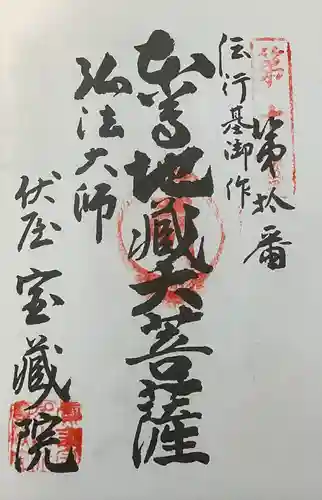 第拾番
伝行基御作
本尊地蔵大菩薩
弘法大師
伏屋
宝蔵院